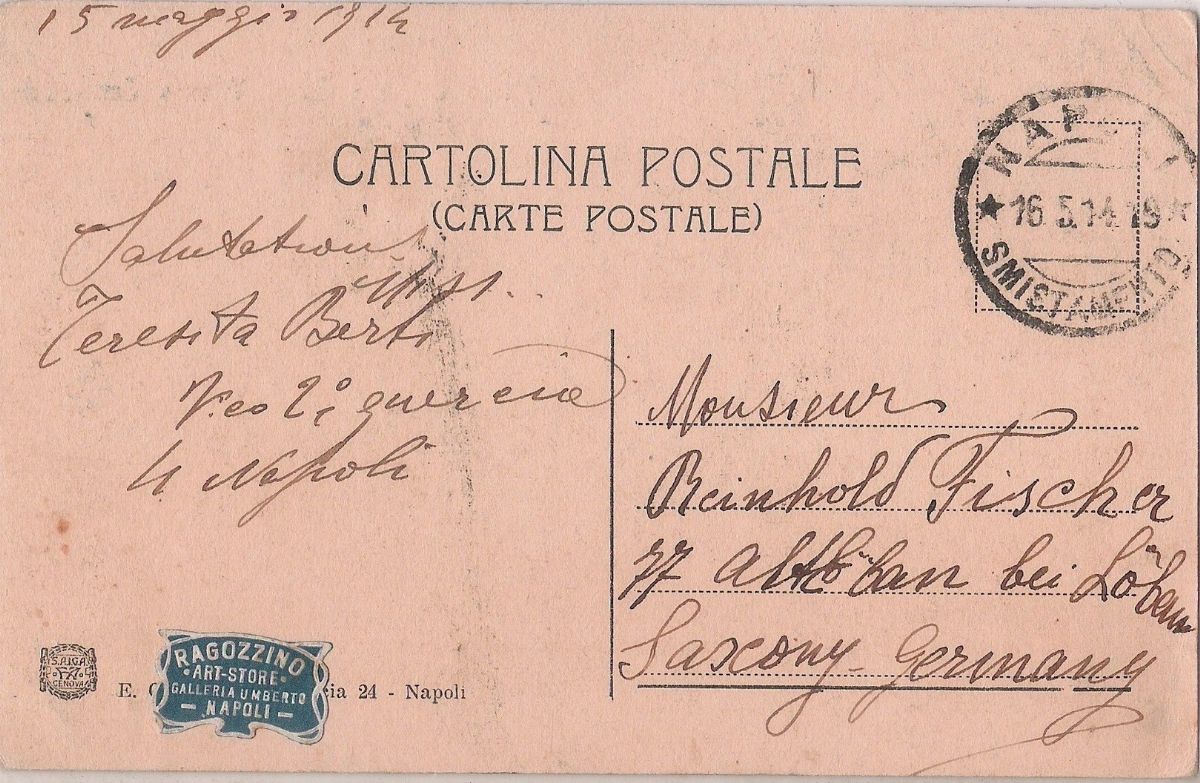 15 maggio 1914
CARTOLINA POSTALE
(CARTE POSTALE)
NAPOLI
16.5.14.19
SMISTAMENTO
Salutations
Miss
Teresita Berti
Vco 2° quercia
4 Napoli
Monsieur
Reinhold Fischer
77 Altlöbau bei Löbau
Saxony Germany
S.A.I.G.A.
GENOVA
RAGOZZINO
ART-STORE
GALLERIA UMBERTO
NAPOLI
E. 24 - Napoli